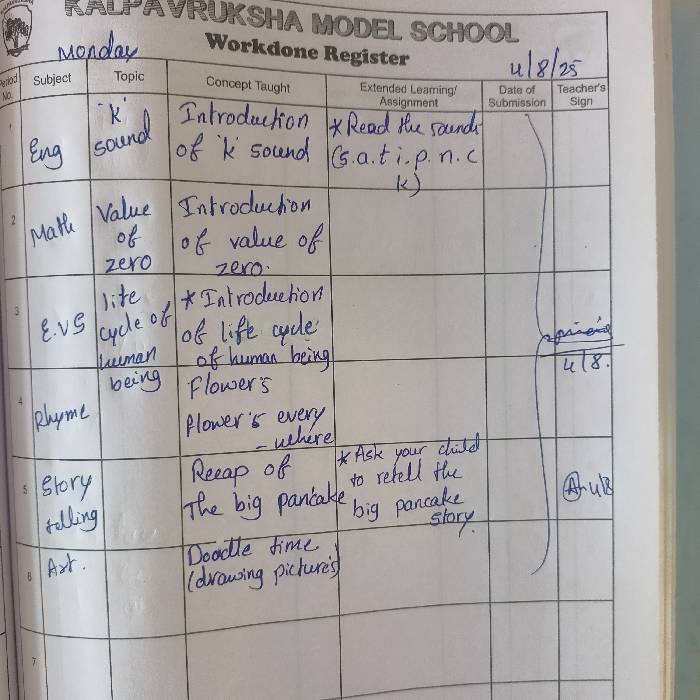 KALPAVRUKSHA MODEL SCHOOL
Workdone Register
Monday
4/8/25
Period No.
Subject
Topic
Concept Taught
Extended Learning/
Assignment
Date of
Submission
Teacher's
Sign
1
Eng
'k'
sound
Introduction
of 'k' sound
* Read the sounds
(s.a.t i.p.n.c
k)
2
Math
Value
of
zero
Introduction
of value of
zero.
3
E.VS
life
cycle of
human
being
* Introduction
of life cycle
of human being
4/8.
4
Rhyme
Flower's
flower's every
-where
5
Story
telling
Recap of
The big pancake
* Ask your child
to retell the
big pancake
story.
4/8
6
Art.
Doodle time
(drawing picture's)
7